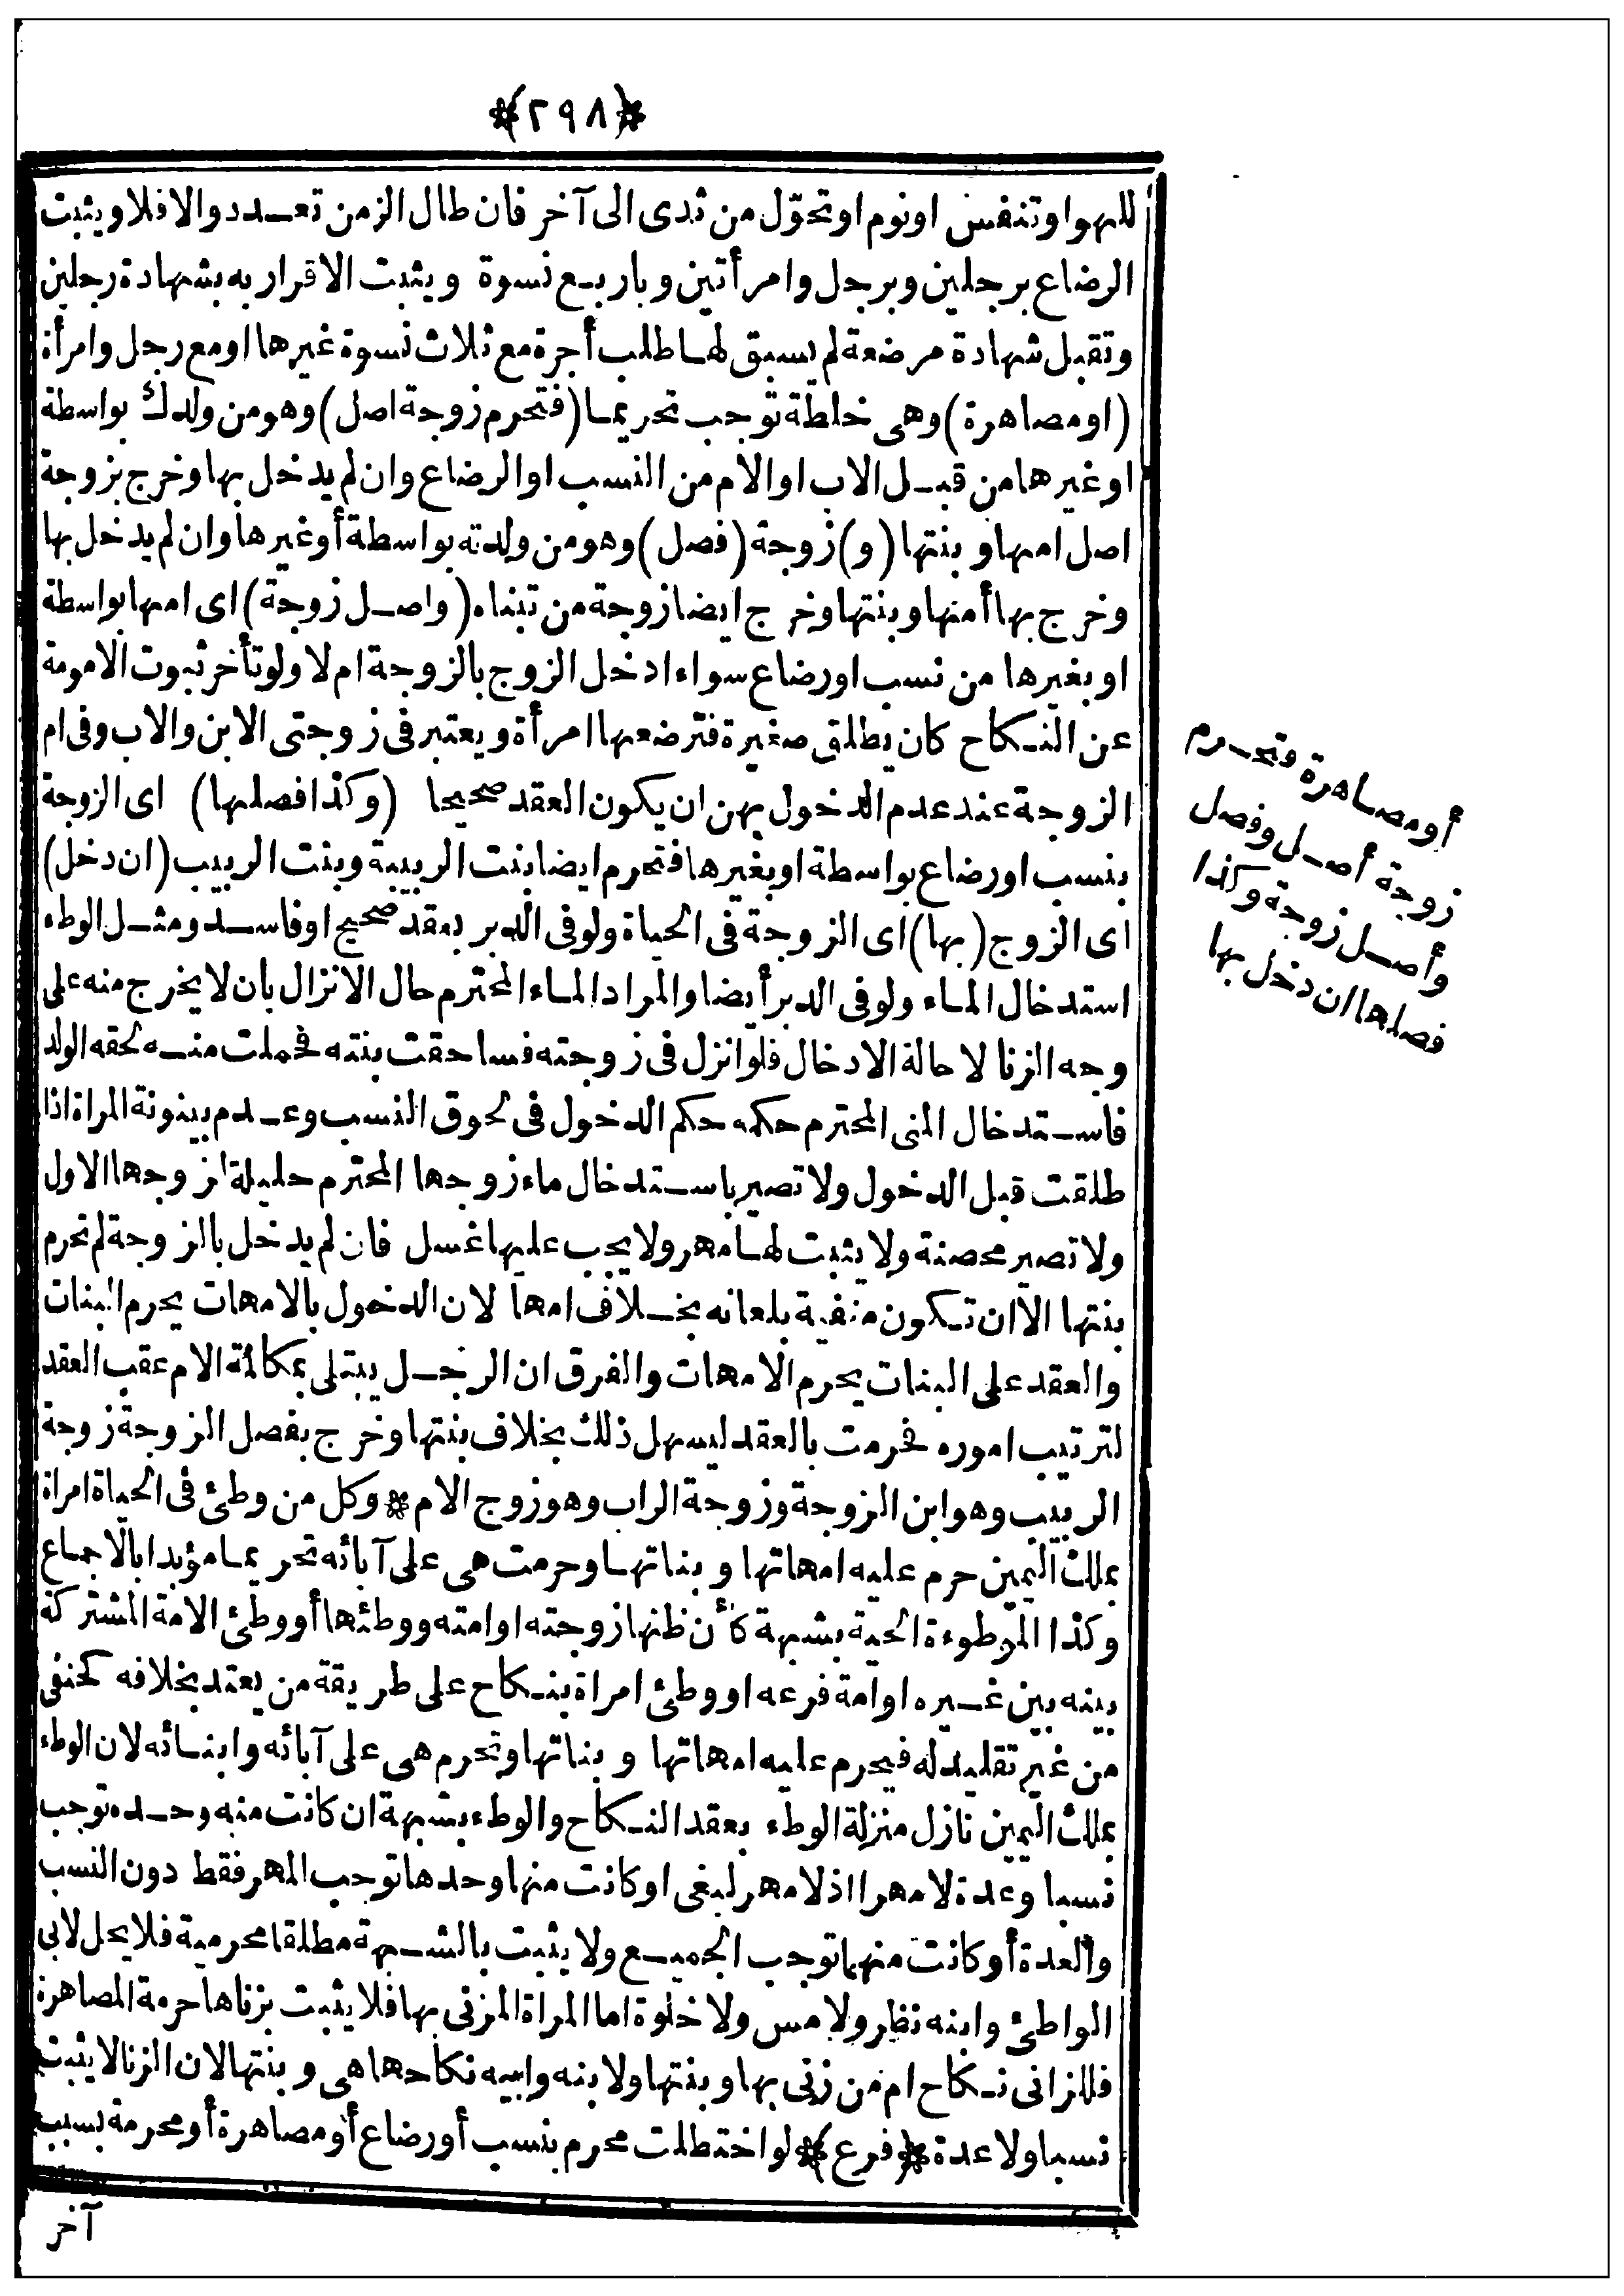 ﴿٢٩٨﴾
للهو او تنفس او نوم او تحوّل من ثدى الى آخر فان طال الزمن تعدد والا فلا ويثبت
الرضاع برجلين وبرجل وامرأتين وباربع نسوة ويثبت الاقرار به بشهادة رجلين
وتقبل شهادة مرضعة لم يسبق لها طلب أجرة مع ثلاث نسوة غيرها او مع رجل وامرأة
(او مصاهرة) وهى خلطة توجب تحريما (فتحرم زوجة اصل) وهو من ولدك بواسطة
او غيرها من قبل الاب او الام من النسب او الرضاع وان لم يدخل بها وخرج بزوجة
اصل امها وبنتها (و) زوجة (فصل) وهو من ولدته بواسطة أو غيرها وان لم يدخل بها
وخرج بها أمنها وبنتها وخرج ايضا زوجة من تبناه (واصل زوجة) اى امها بواسطة
او بغيرها من نسب او رضاع سواء ادخل الزوج بالزوجة ام لا ولو تأخر ثبوت الامومة
عن النكاح كان يطلق صغيرة فترضعها امرأة ويعتبر فى زوجتى الابن والاب وفى ام
الزوجة عند عدم الدخول بهن ان يكون العقد صحيحا (وكذا فصلها) اى الزوجة
بنسب او رضاع بواسطة او بغيرها فتحرم ايضا بنت الربيبة وبنت الربيب (ان دخل)
اى الزوج (بها) اى الزوجة فى الحياة ولو فى الدبر بعقد صحيح او فاسد ومثل الوطء
استدخال الماء ولو فى الدبر أيضا والمراد الماء المحترم حال الانزال بأن لا يخرج منه على
وجه الزنا لا حالة الادخال فلو انزل فى زوجته فساحقت بنته فحملت منه لحقه الولد
فاستدخال المنى المحترم حكمه حكم الدخول فى لحوق النسب وعدم بينونة المراة اذا
طلقت قبل الدخول ولا تصير باستدخال ماء زوجها المحترم حليلة لزوجها الاول
ولا تصير محصنة ولا يثبت لها مهر ولا يجب عليها غسل فان لم يدخل بالزوجة لم تحرم
بنتها الا ان تكون منفية بلعانه بخلاف امها لان الدخول بالامهات يحرم البنات
والعقد على البنات يحرم الامهات والفرق ان الرجل يبتلى بمكالمة الام عقب العقد
لترتيب اموره فحرمت بالعقد ليسهل ذلك بخلاف بنتها وخرج بفصل الزوجة زوجة
الربيب وهو ابن الزوجة وزوجة الراب وهو زوج الام * وكل من وطئ فى الحياة امراة
بملك اليمين حرم عليه امهاتها وبناتها وحرمت هى على آبائه تحريما مؤبدا بالاجماع
وكذا الموطوءة الحية بشبهة كأن ظنها زوجته او امته ووطئها أو وطئ الامة المشتركة
بينه بين غيره او امة فرعه او وطئ امراة بنكاح على طريقة من يعتد بخلافه كحنفى
من غير تقليد له فيحرم عليه امهاتها وبناتها وتحرم هى على آبائه وابنائه لان الوطء
بملك اليمين نازل منزلة الوطء بعقد النكاح والوطء بشبهة ان كانت منه وحده توجب
نسبا وعدة لا مهرا اذ لا مهر لبغى او كانت منها وحدها توجب المهر فقط دون النسب
والعدة أو كانت منهما توجب الجميع ولا يثبت بالشبهة مطلقا محرمية فلا يحل لابى
الواطئ وابنه نظر ولا مس ولا خلوة اما المراة المزنى بها فلا يثبت بزناها حرمة المصاهرة
فللزانى نكاح ام من زنى بها وبنتها ولابنه وابيه نكاحها هى وبنتها لان الزنا لا يثبت
نسبا ولا عدة ﴿فرع﴾ لو اختطلت محرم بنسب أو رضاع أو مصاهرة أو محرمة بسبب
آخر
أو مصاهرة فتحرم
زوجة أصل وفصل
وأصل زوجة وكذا
فصلها ان دخل بها